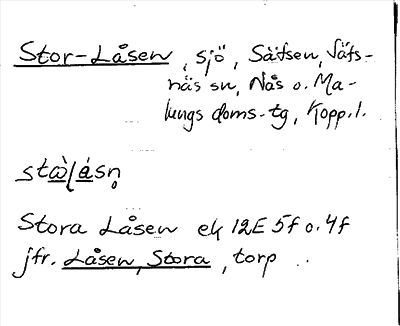 Stor-Låsen, sjö, Säfsen, Säfs-
näs sn, Nås o. Ma-
lungs doms-tg, Kopp. l.
stæ̀ɭåsn̥
Stora Låsen ek 12E 5f o. 4f
jfr. Låsen, Stora, torp ..